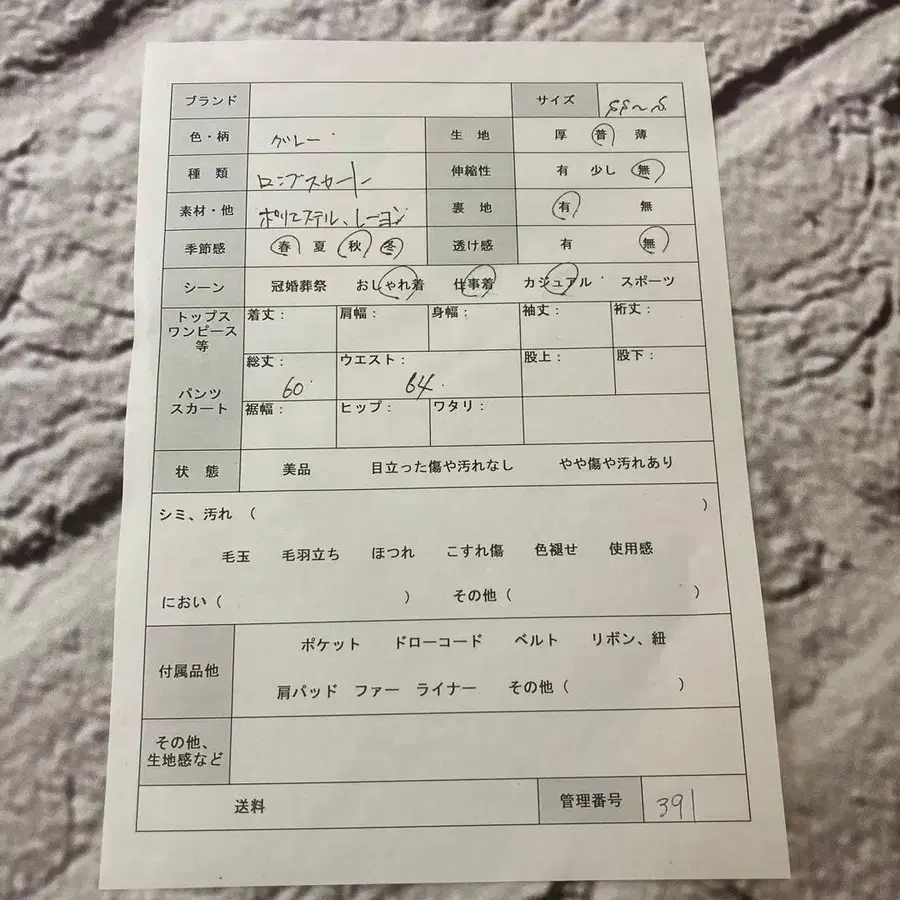 ブランド サイズ SS〜S.
色・柄 グレー 生 地 厚 普 薄
種 類 ロングスカート 伸縮性 有 少し 無
素材・他 ポリエステル、レーヨン 裏 地 有 無
季節感 春 夏 秋 冬 透け感 有 無
シーン 冠婚葬祭 おしゃれ着 仕事着 カジュアル スポーツ
トップス
ワンピース
等
着丈: 肩幅: 身幅: 袖丈: 裄丈:
パンツ
スカート
総丈: 60 ウエスト: 64 股上: 股下:
裾幅: ヒップ: ワタリ:
状 態 美品 目立った傷や汚れなし やや傷や汚れあり
シミ、汚れ ( )
毛玉 毛羽立ち ほつれ こすれ傷 色褪せ 使用感
におい ( ) その他 ( )
付属品他 ポケット ドローコード ベルト リボン、紐
肩パッド ファー ライナー その他 ( )
その他、
生地感など
送料 管理番号 391